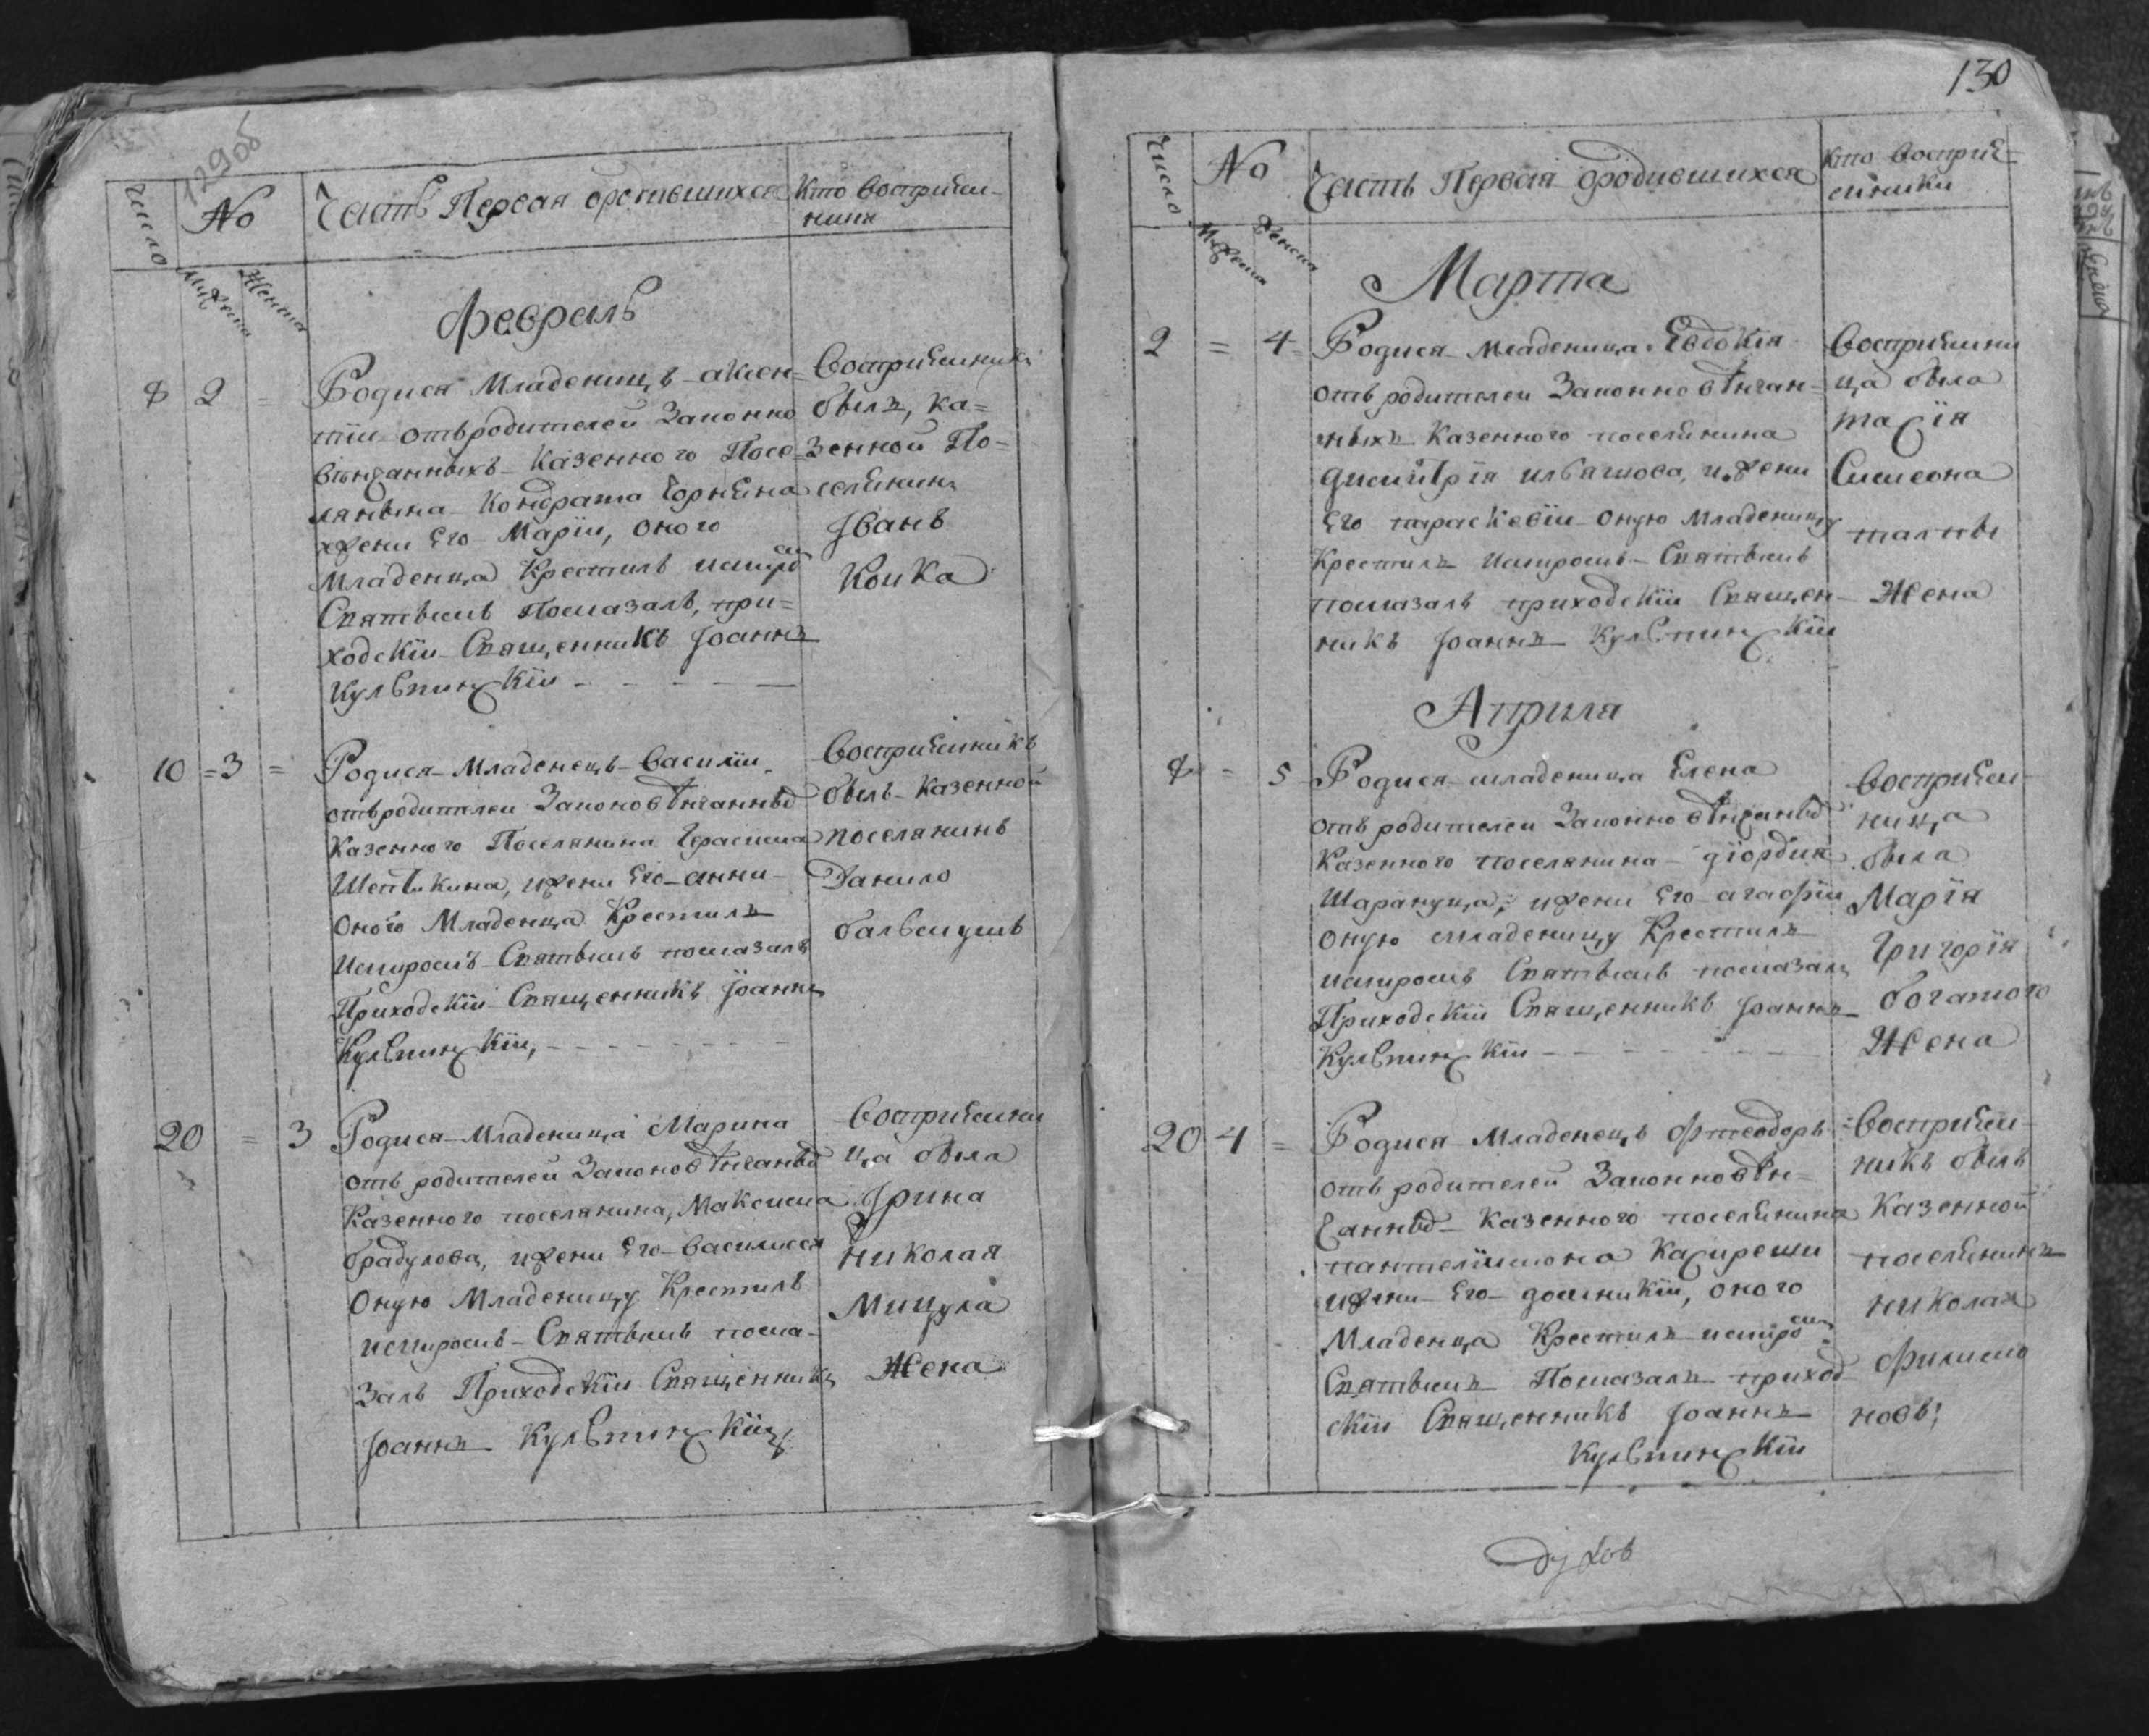 129об
Число
No
Часть Первая ородившихся
Кто восприем-
ники
Мужеска
Женска
Февраль
8 2 =
Родися Младенецъ аксен=
тіи отъ родителей Законно
вѣнчанныхъ Казенного Посе=
лянина Кондрата
жени Его Маріи, оного
Младенца Крестилъ имиро
Святымъ Помазалъ, при=
ходскій Священникъ Іоаннъ
Кульчинскіи
Восприемникъ
былъ, Ка=
зенной По=
селянинъ
Іванъ
Коика
10 = 3 =
Родися Младенецъ Василіи
отъ родителеи Законовѣнчанныхъ
Казенного Поселянина Герасима
ижени Его анни
Оного Младенца Крестилъ
имиромъ Святымъ помазалъ
Приходскій Священникъ Іоаннъ
Кульчинскіи,
Восприемникъ
былъ Казенной
поселянинъ
Данило
20 = 3
Родися Младеница Марина
отъ родителей Законовѣнчаныхъ
Казенного поселянина, Максима
брадулова, ижени Его Василисси
Оную Младеницу Крестилъ
имиромъ Святымъ пома-
залъ Приходскіи Священникъ
Іоаннъ Кульчинскіи
Восприемни
ца была
Ірина
николая
Мицула
Жена
130
Число
No
Часть Первая ородившихся
Кто восприе=
мники
Мужеска
Женска
Марта
2 = 4
Родися Младеница Евдокія
отъ родителеи Законновѣнчан=
ныхъ Казенного поселянина
Димитрія ильяшова, ижени
Его параскевіи оную Младеницу
Крестилъ имиромъ Святымъ
помазалъ приходскіи Священ-
никъ Іоаннъ Кульчинскіи
Восприемни
ца была
тасія
Симеона
Жена
Априля
8 = 5
Родися младеница Елена
отъ родителеи Законновѣнчаныхъ
Казенного поселянина діордия
Шарануца, ижени Его агафіи
оную младеницу Крестилъ
имиромъ Святымъ помазалъ
Приходскіи Священникъ Іоаннъ
Кульчинскіи
Восприем-
ница
была
Марія
Григорія
богатого
Жена
20 4 =
Родися Младенецъ Фтеодоръ
отъ родителей Законновѣн=
чанныхъ Казенного поселянина
пантелиимона
ижени Его домникіи, оного
Младенца Крестилъ имиро
Святымъ Помазалъ приход
скіи Священникъ Іоаннъ
Кульчинскіи
Восприем-
никъ былъ
Казенной
поселянинъ
николаи
Филимо
новъ;
духов